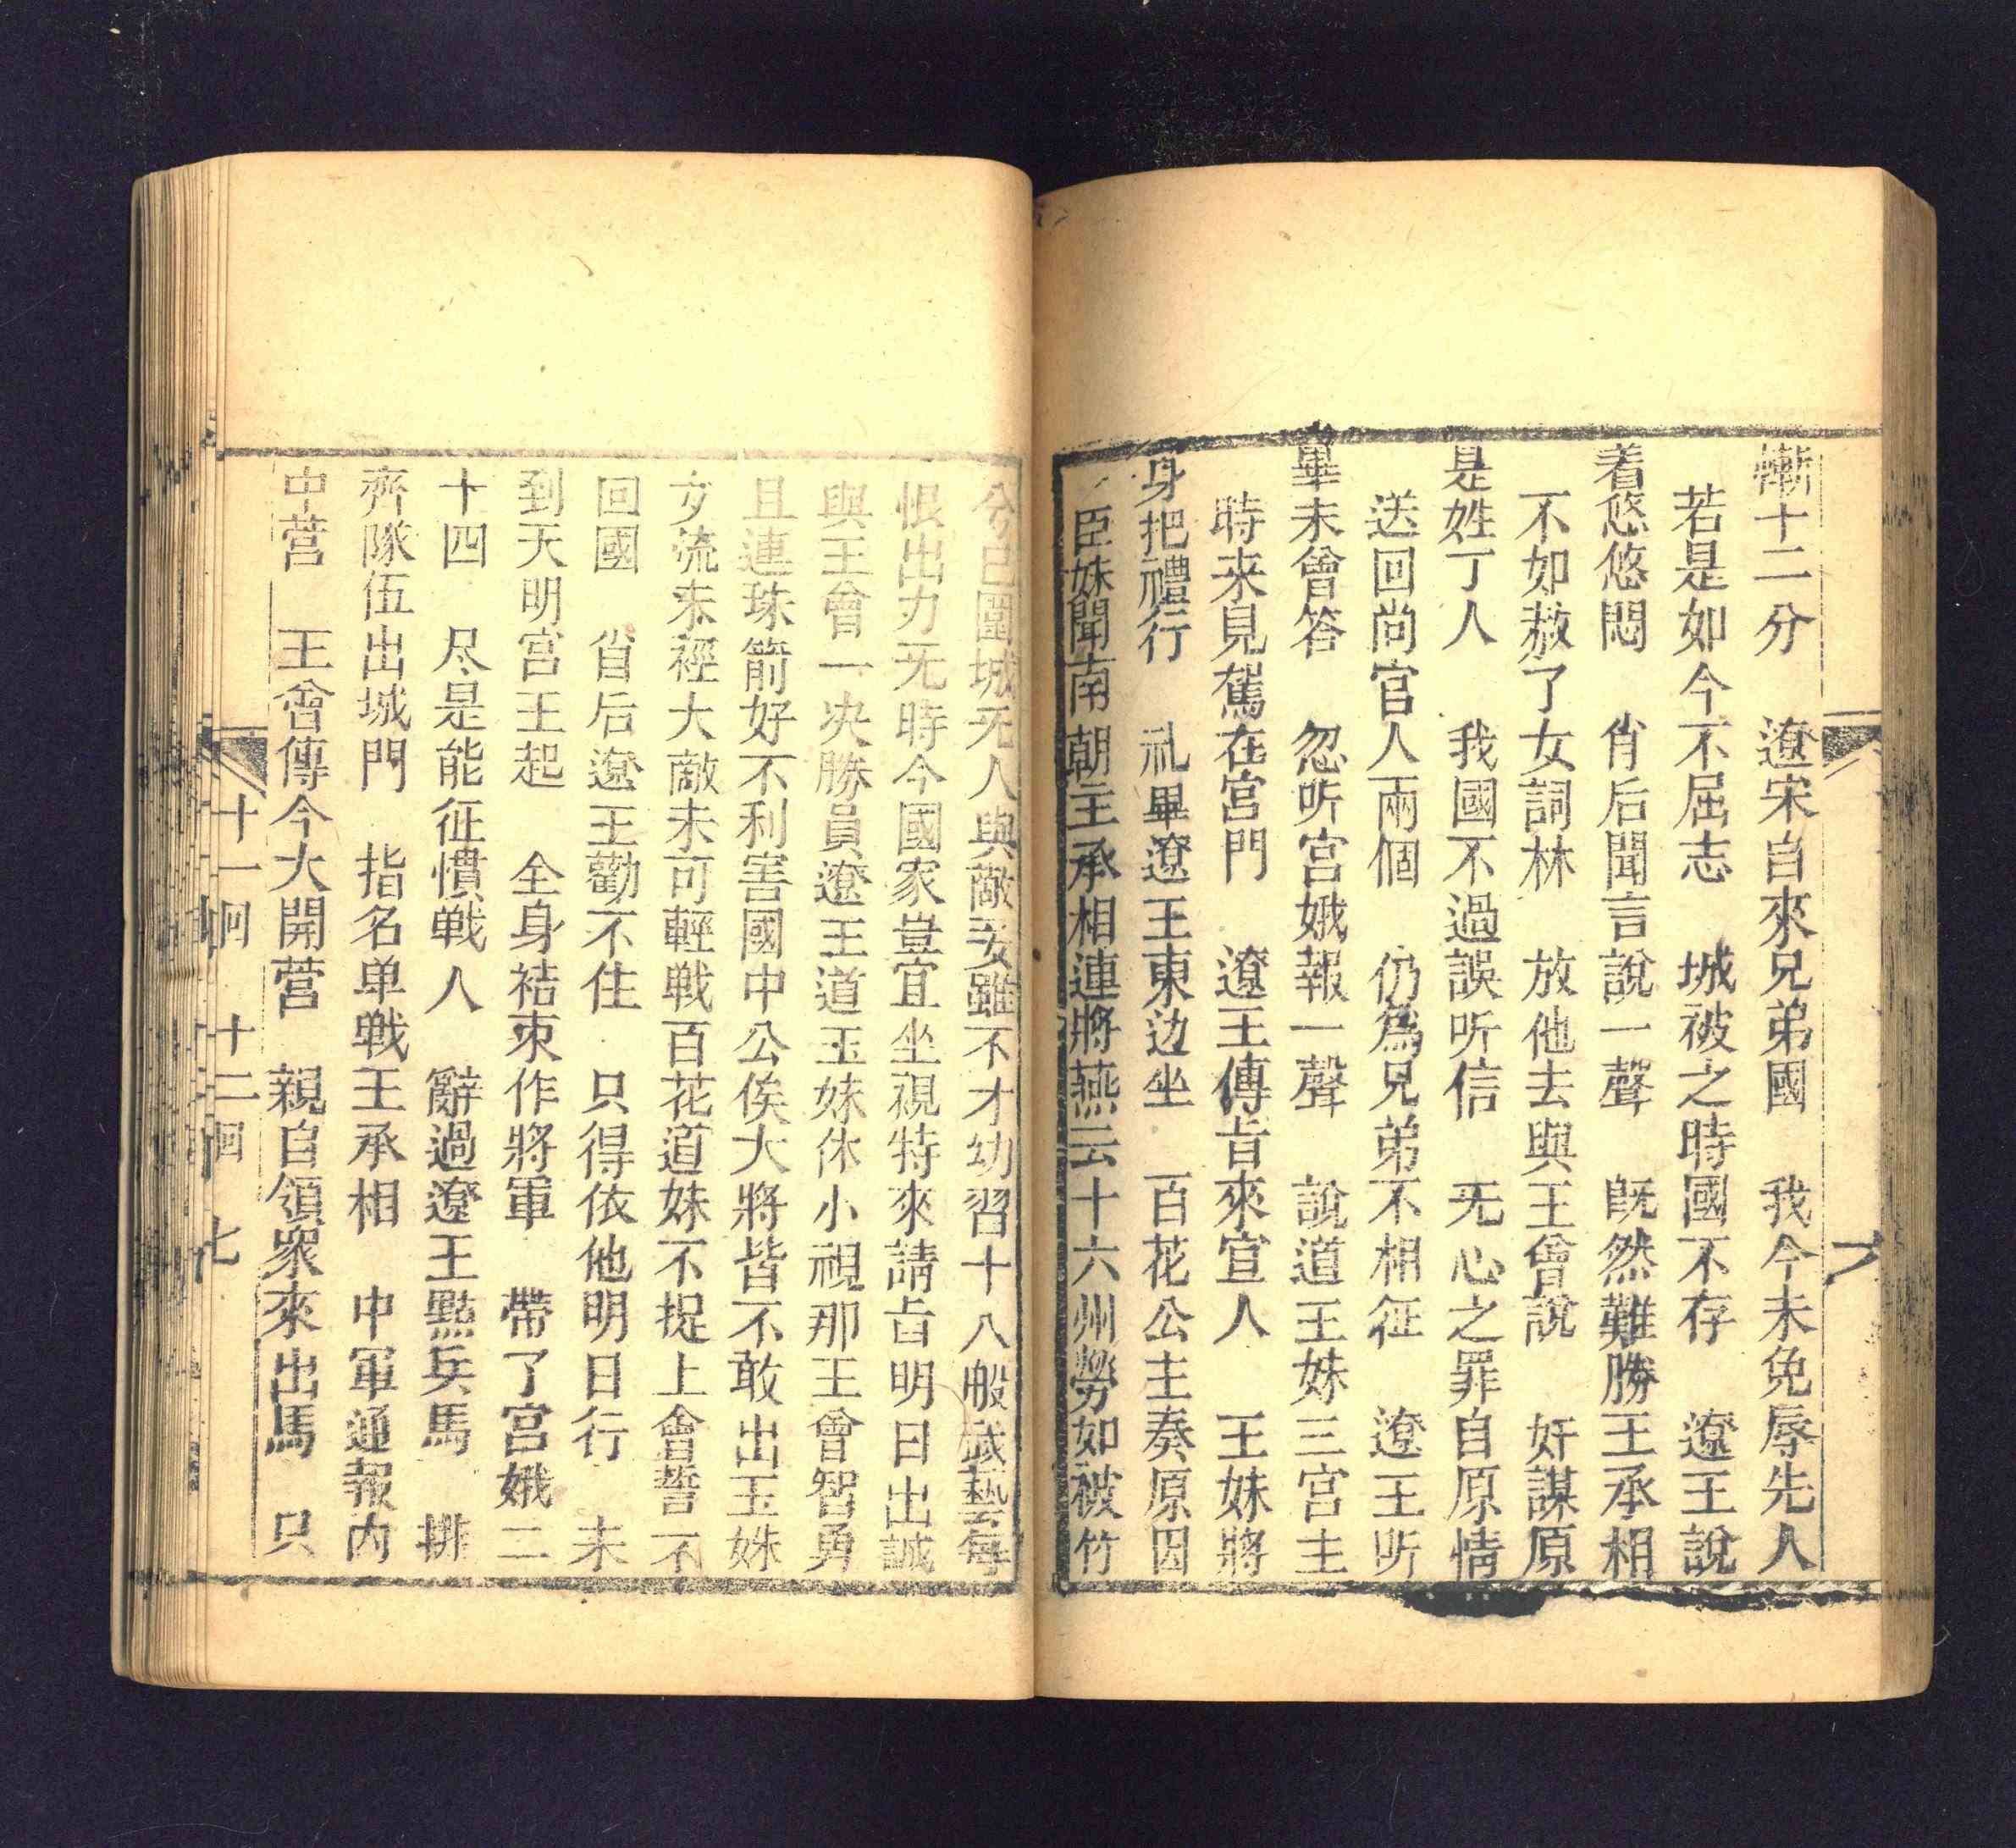 慚十二分　遼宋自來兄弟國　我今未免辱先人
若是如今不屈志　城被之時國不存　遼王說
着悠悠悶　肖后聞言說一聲　既然難勝王承相
不如赦了女詞林　放他去與王會說　奸謀原
是姓丁人　我國不過誤听信　无心之罪自原情
送回尚官人兩個　仍為兄弟不相征　遼王听
畢未曾答　忽听宫娥報一聲　說道王妹三宫主
時來見駕在宮門　遼王傳旨來宣人　王妹將
身把禮行　礼畢遼王東边坐　百花公主奏原因
臣妹聞南朝主承相連將燕云十六州勞如被竹
今已圍城无人與敵妾雖不才幼習十八般武藝每
恨出力无時今國家豈宜坐視特來請旨明日出誠
與王會一决勝員遼王道玉妹休小視那王曾智勇
且連珠箭好不利害國中公侯大將皆不敢出玉姝
女流未經大敵未可輕戰百花道妹不捉上會誓不
回國　肖后遼王勸不住　只得依他明日行　未
到天明宫王起　全身袺束作將軍　帶了宮娥二
十四　尽是能征慣戰人　辭過遼王點兵馬　排
齊隊伍出城門　指名单戰王承相　中軍通報内
中营　王會傳今大開营　親自領衆來出馬　只
十一回　十二回　七